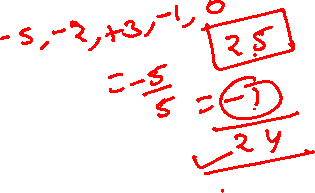 -5, -2, +3, -1, 0
25
= -5/5 = -1
24